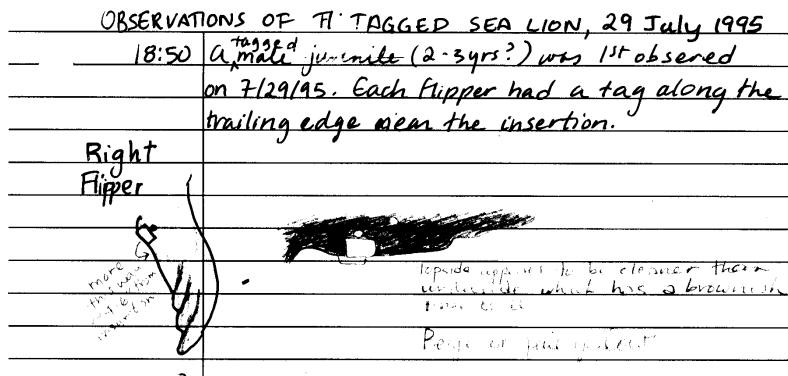 OBSERVATIONS OF A TAGGED SEA LION, 29 July 1995
18:50 A tagged male juvenile (2-3yrs?) was 1st observed
on 7/29/95. Each flipper had a tag along the
trailing edge near the insertion.
Right
Flipper
more
this way
insertion
topside appears to be cleaner than
underside which has a brownish